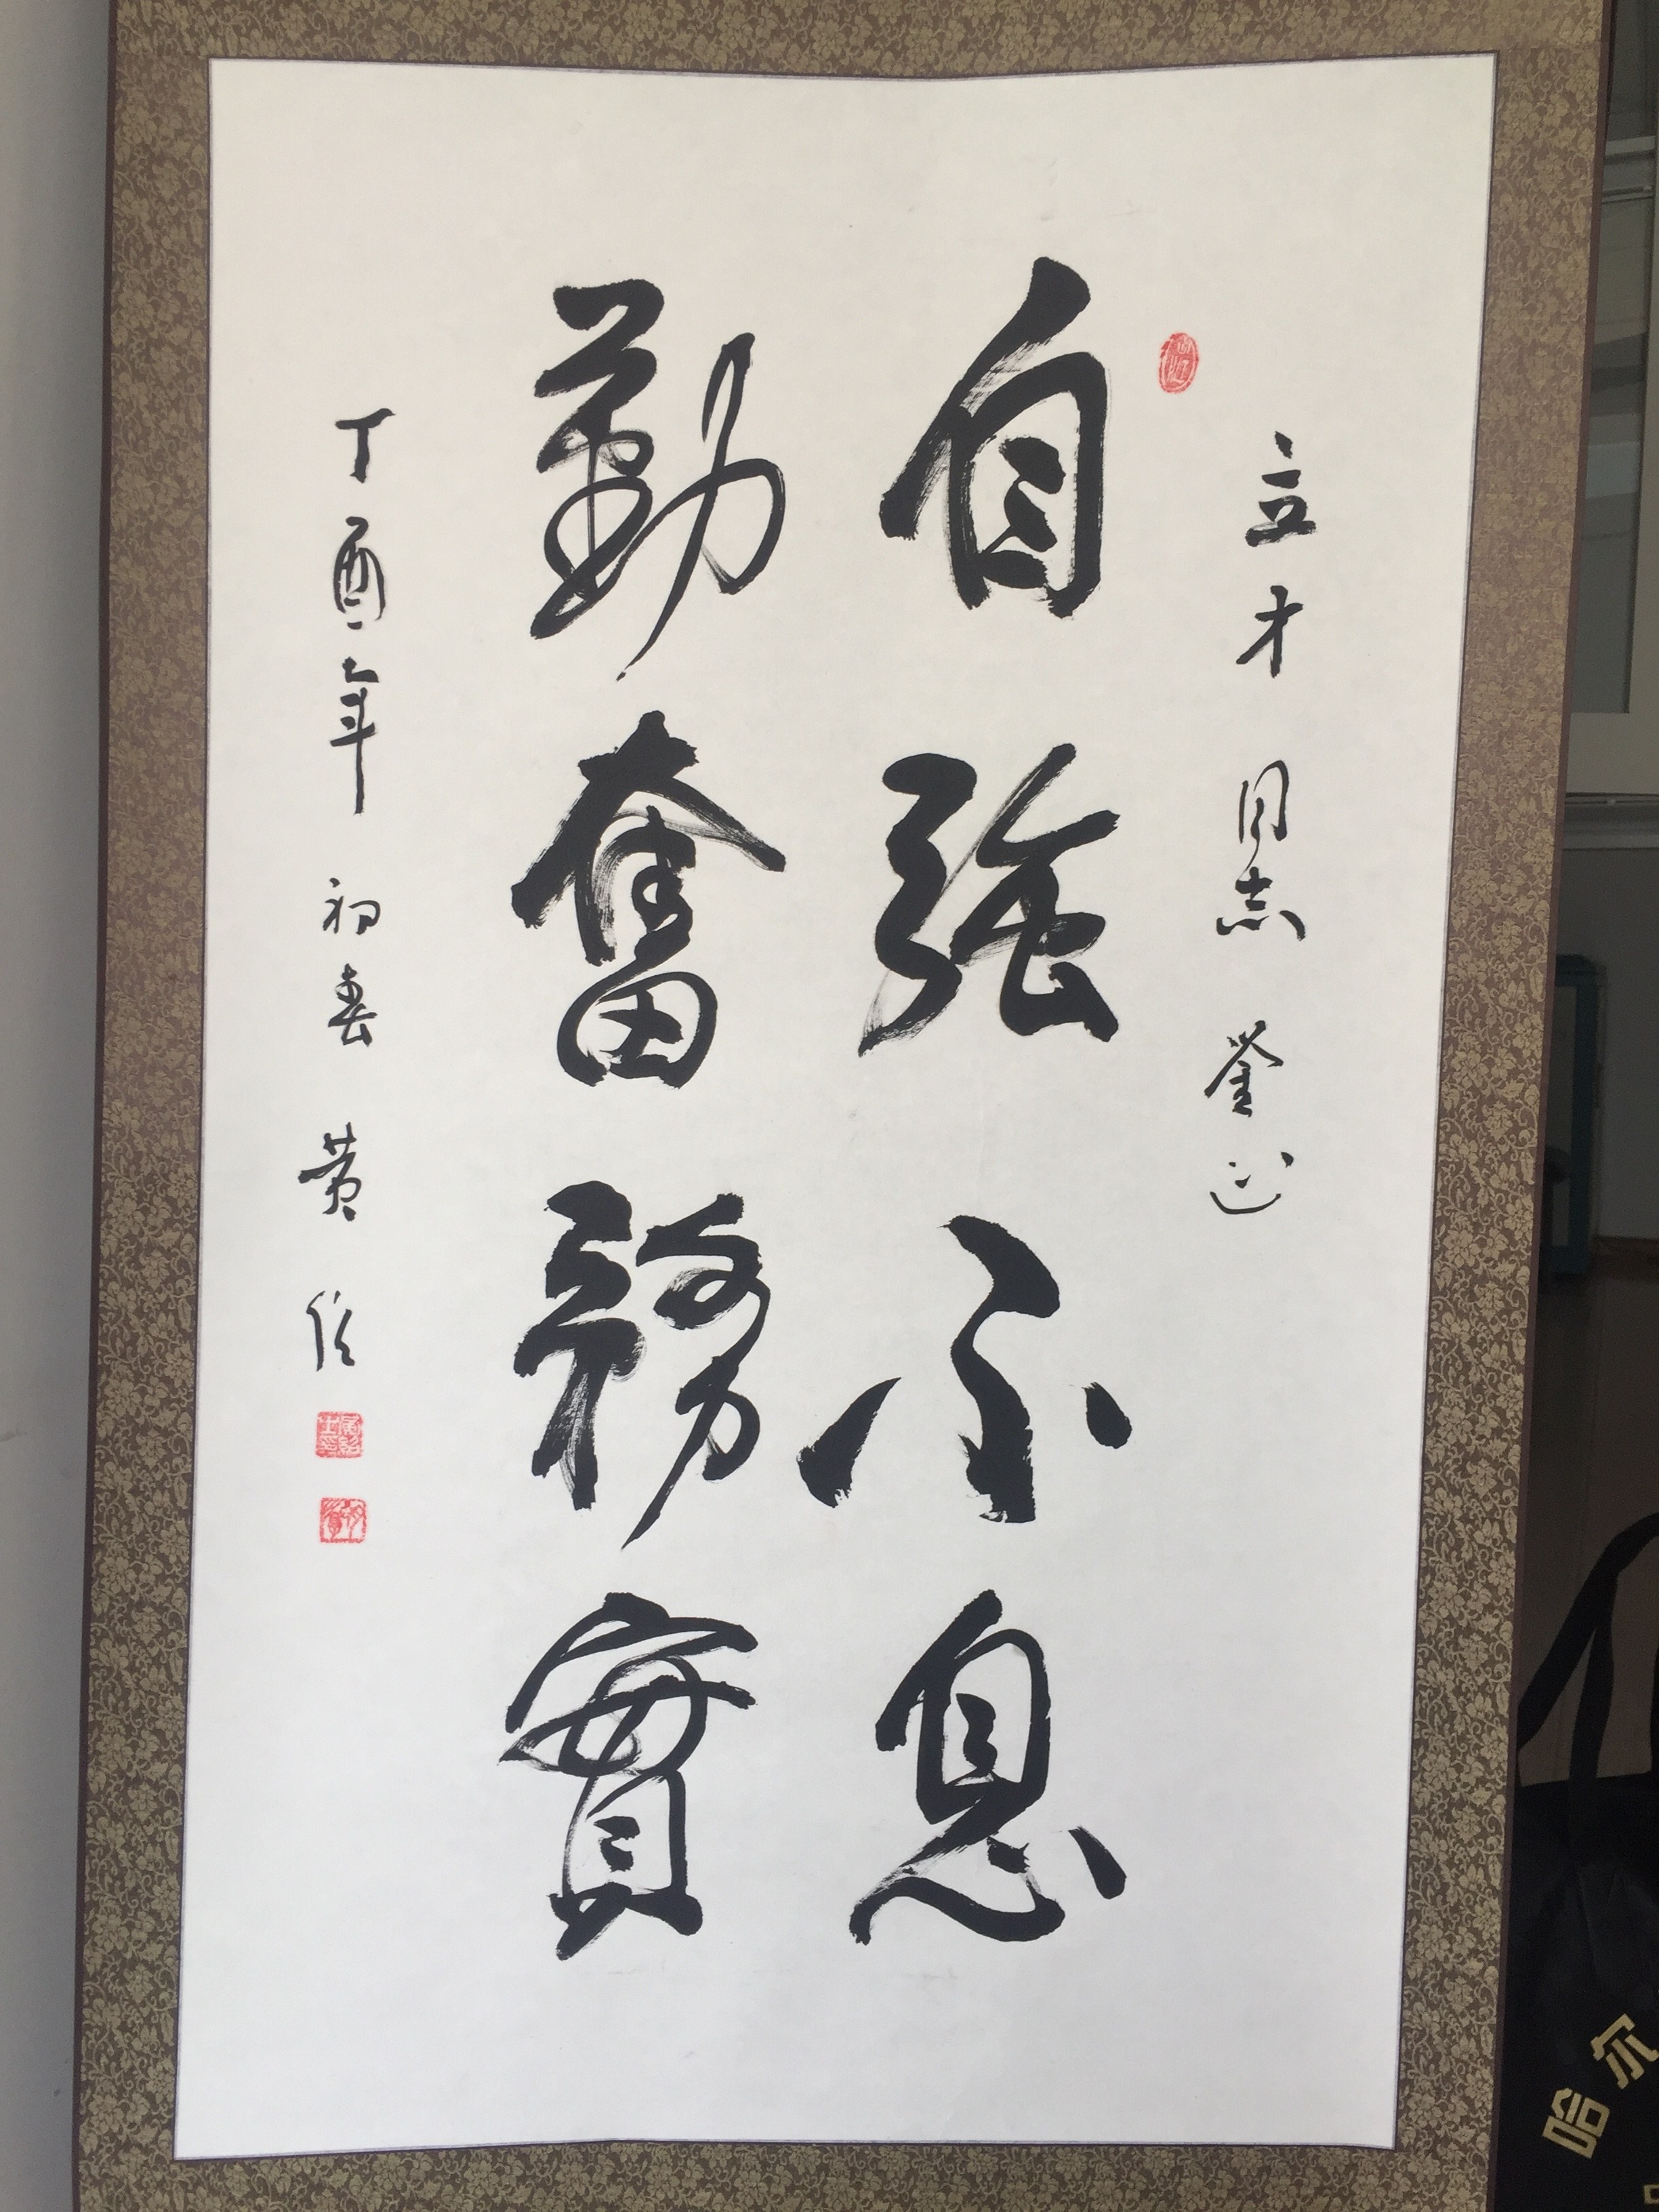 立才同志鉴正
自强不息
勤奮務實
丁酉年初春黄信
哈尔